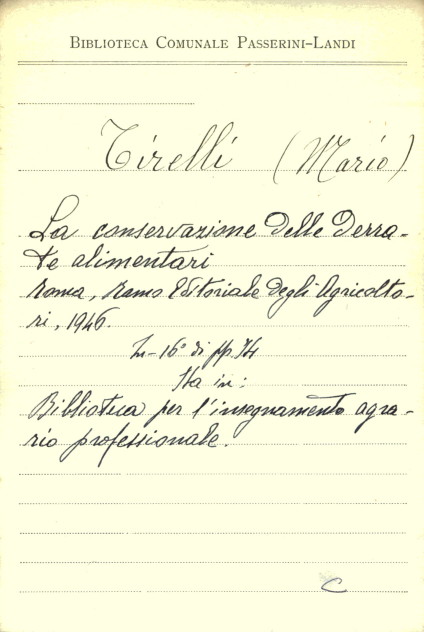 BIBLIOTECA COMUNALE PASSERINI-LANDI
Tirelli (Mario)
La conservazione delle derra-
te alimentari
Roma, Ramo Editoriale degli Agricolto-
ri, 1946.
In-16° di pp. 74
Sta in:
Biblioteca per l'insegnamento agra-
rio professionale.
C